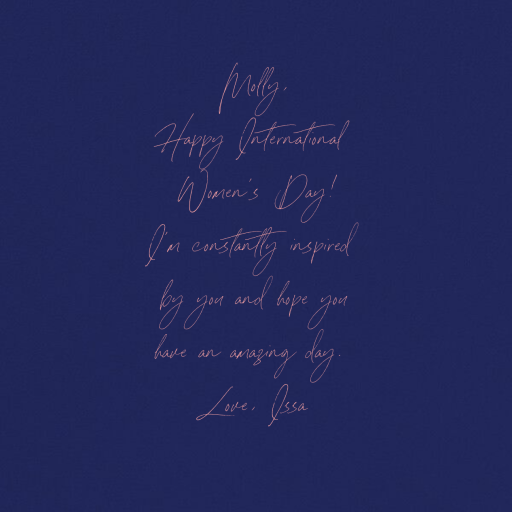 Molly,
Happy International
Women's Day!
I'm constantly inspired
by you and hope you
have an amazing day.
Love, Issa